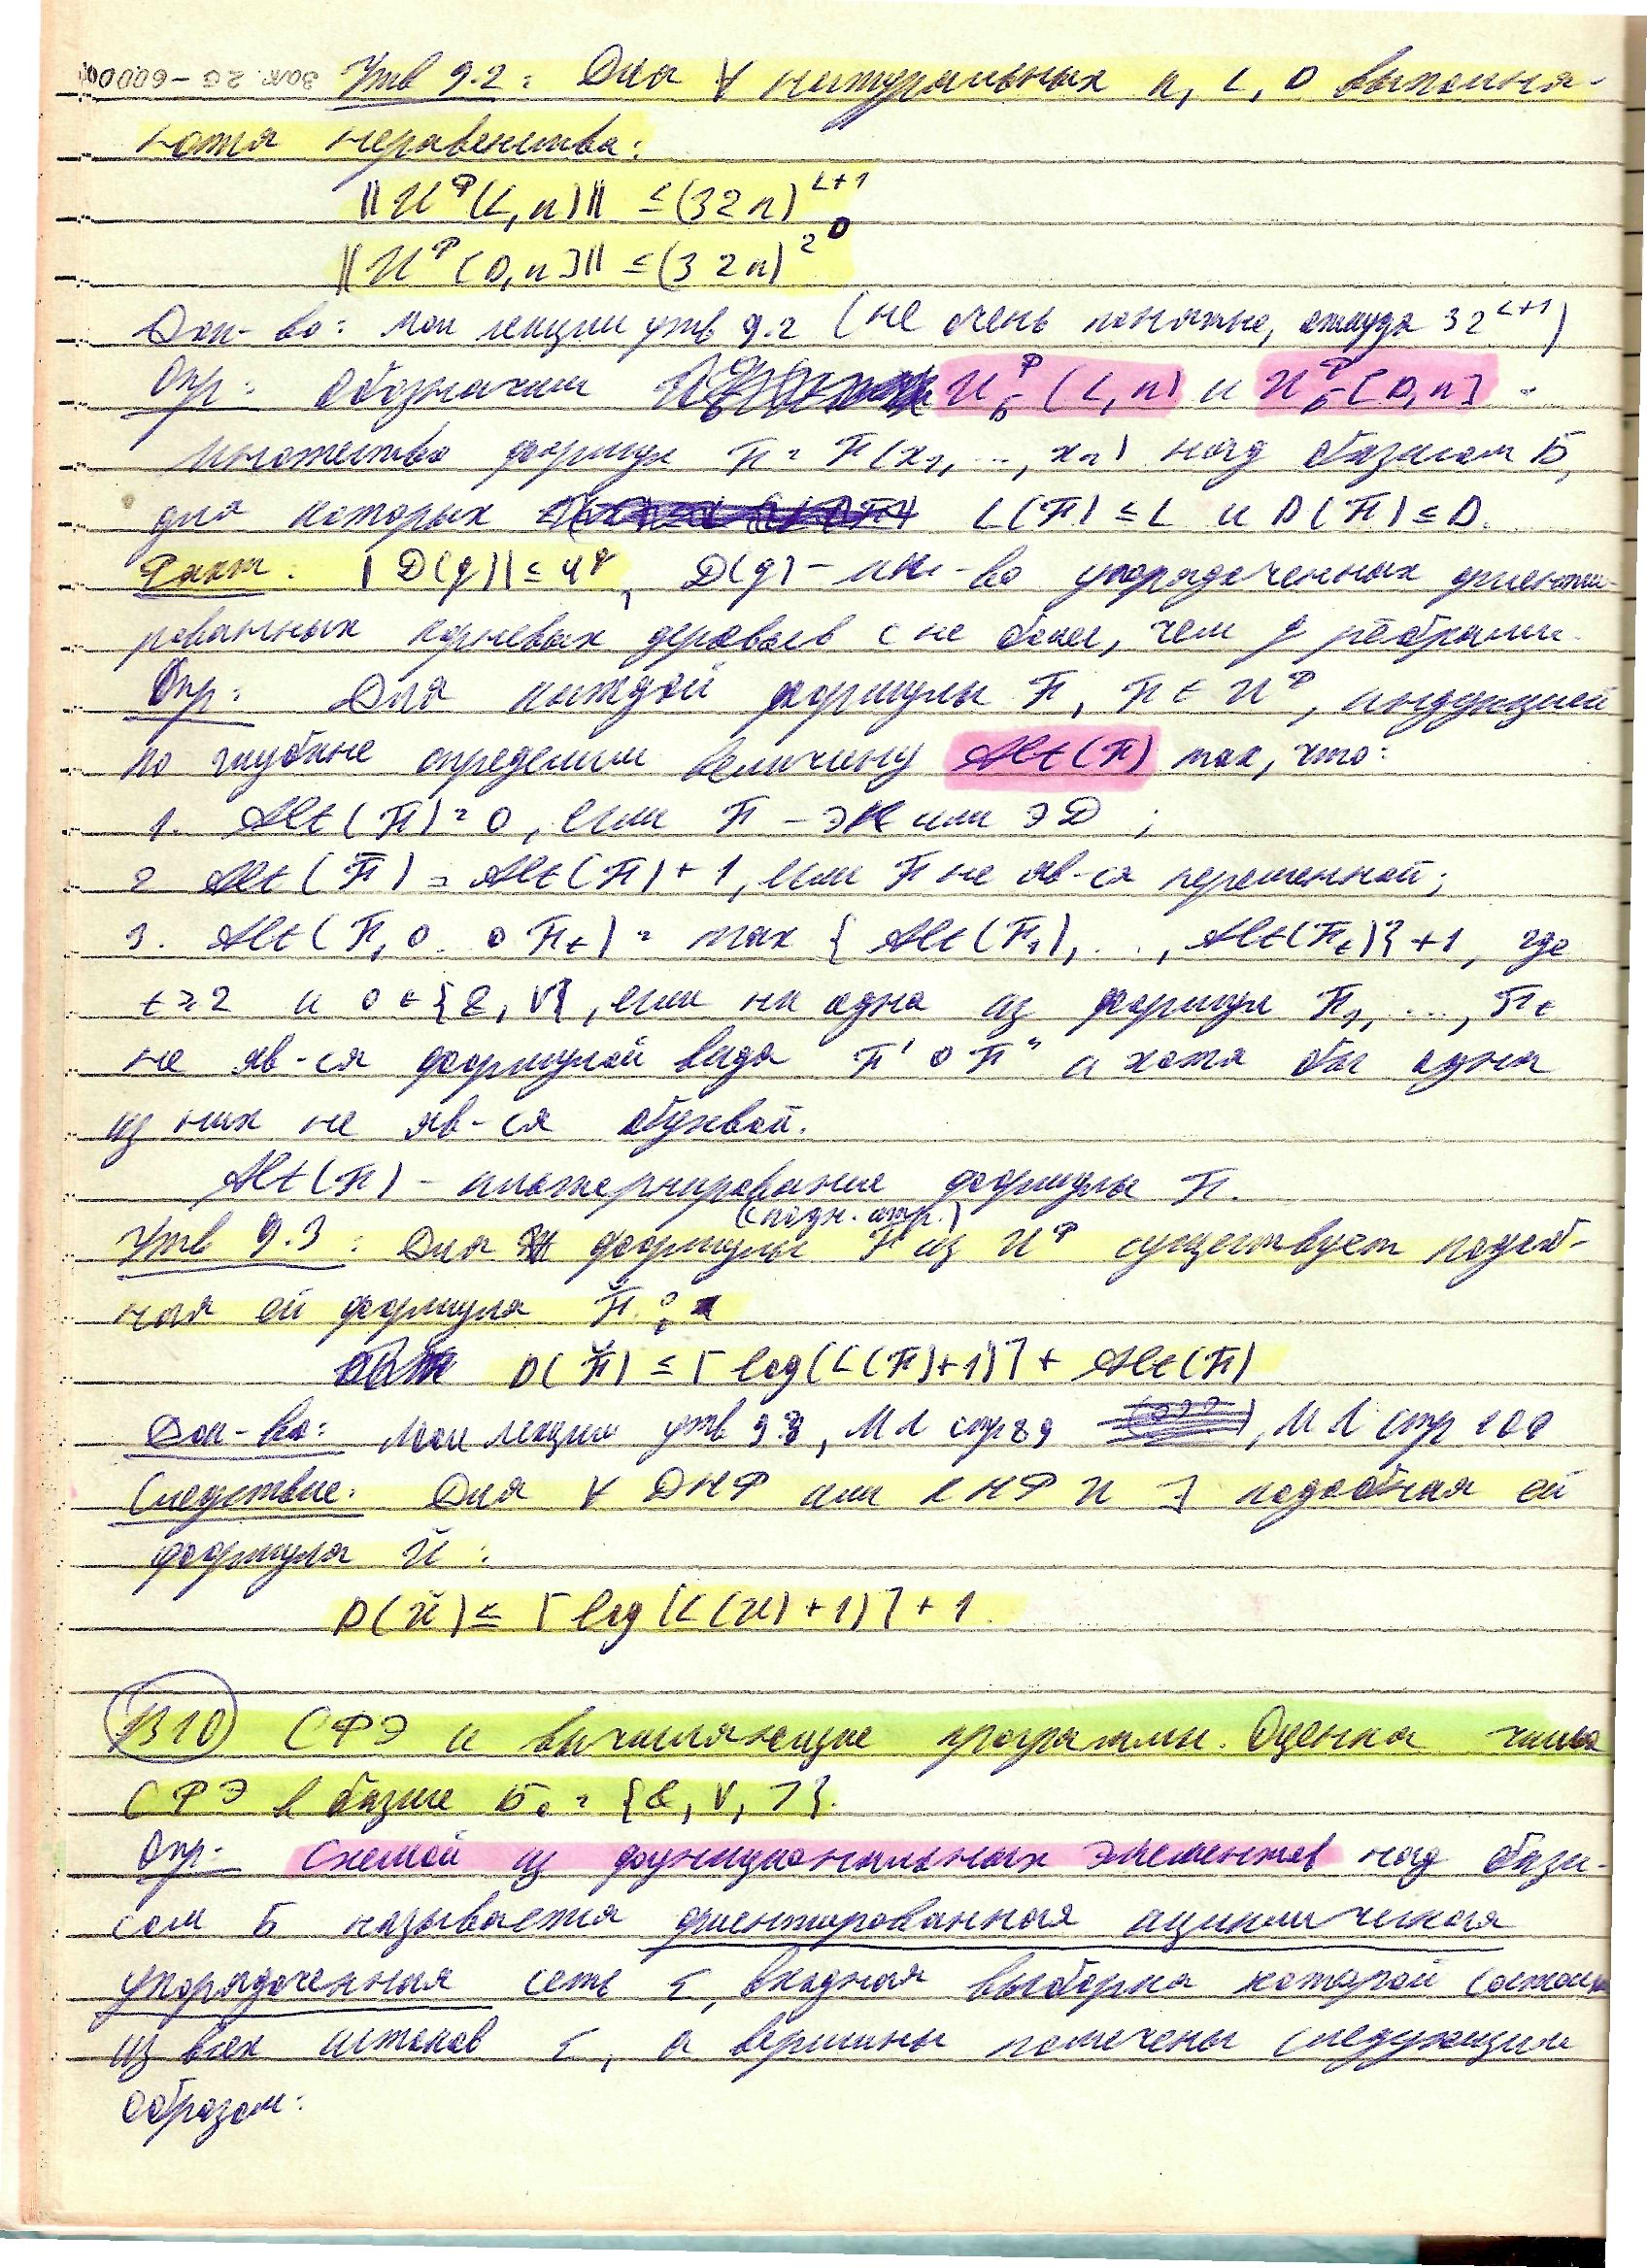 Утв 9.2: Для ∀ натуральных n, L, D выполня-
ются неравенства:
||U^Ф(L,n)|| ≤ (32n)^{L+1}
||U^Ф[D,n]|| ≤ (32n)^{2^D}
Док-во: Мои лекции утв 9.2 (не очень понятно, откуда 32^{L+1})
Опр: Обозначим U^Ф_Б(L,n) и U^Ф_Б[D,n] -
множество формул F = F(x₁, ..., xₙ) над базисом Б,
для которых L(F) ≤ L и D(F) ≤ D.
Факт: |D(q)| ≤ 4^q, D(q) - мн-во упорядоченных ориенти-
рованных корневых деревьев с не более, чем q рёбрами.
Опр: Для каждой формулы F, F ∈ U^Ф, индукцией
по глубине определим величину Alt(F) так, что:
1. Alt(F) = 0, если F - ЭК или ЭД;
2. Alt(F̅) = Alt(F) + 1, если F не яв-ся переменной;
3. Alt(F₁ ∘ .. ∘ F_t) = max { Alt(F₁), ..., Alt(F_t)} + 1, где
t ≥ 2 и ∘ ∈ {&, ∨}, если ни одна из формул F₁, ..., F_t
не яв-ся формулой вида F' ∘ F'' а хотя бы одна
из них не яв-ся буквой.
Alt(F) - альтернирование формулы F.
(подн. отр.)
Утв 9.3: Для ∀ формулы F из U^Ф существует подоб-
ная ей формула F̌ :
D(F̌) ≤ ⌈log(L(F)+1)⌉ + Alt(F)
Док-во: Мои лекции утв 9.3, МЛ стр 89, МЛ стр 100
Следствие: Для ∀ ДНФ или КНФ U ∃ подобная ей
формула Ǔ :
D(Ǔ) ≤ ⌈log(L(U)+1)⌉ + 1.
В10 СФЭ и вычисляющие программы. Оценка числа
СФЭ в базисе Б₀ = {&, ∨, ¬}.
Опр: Схемой из функциональных элементов над бази-
сом Б называется ориентированная ациклическая
упорядоченная сеть Σ, входная выборка которой состоит
из всех истоков Σ, а вершины помечены следующим
образом:
ЗАК. 25 - 60.000